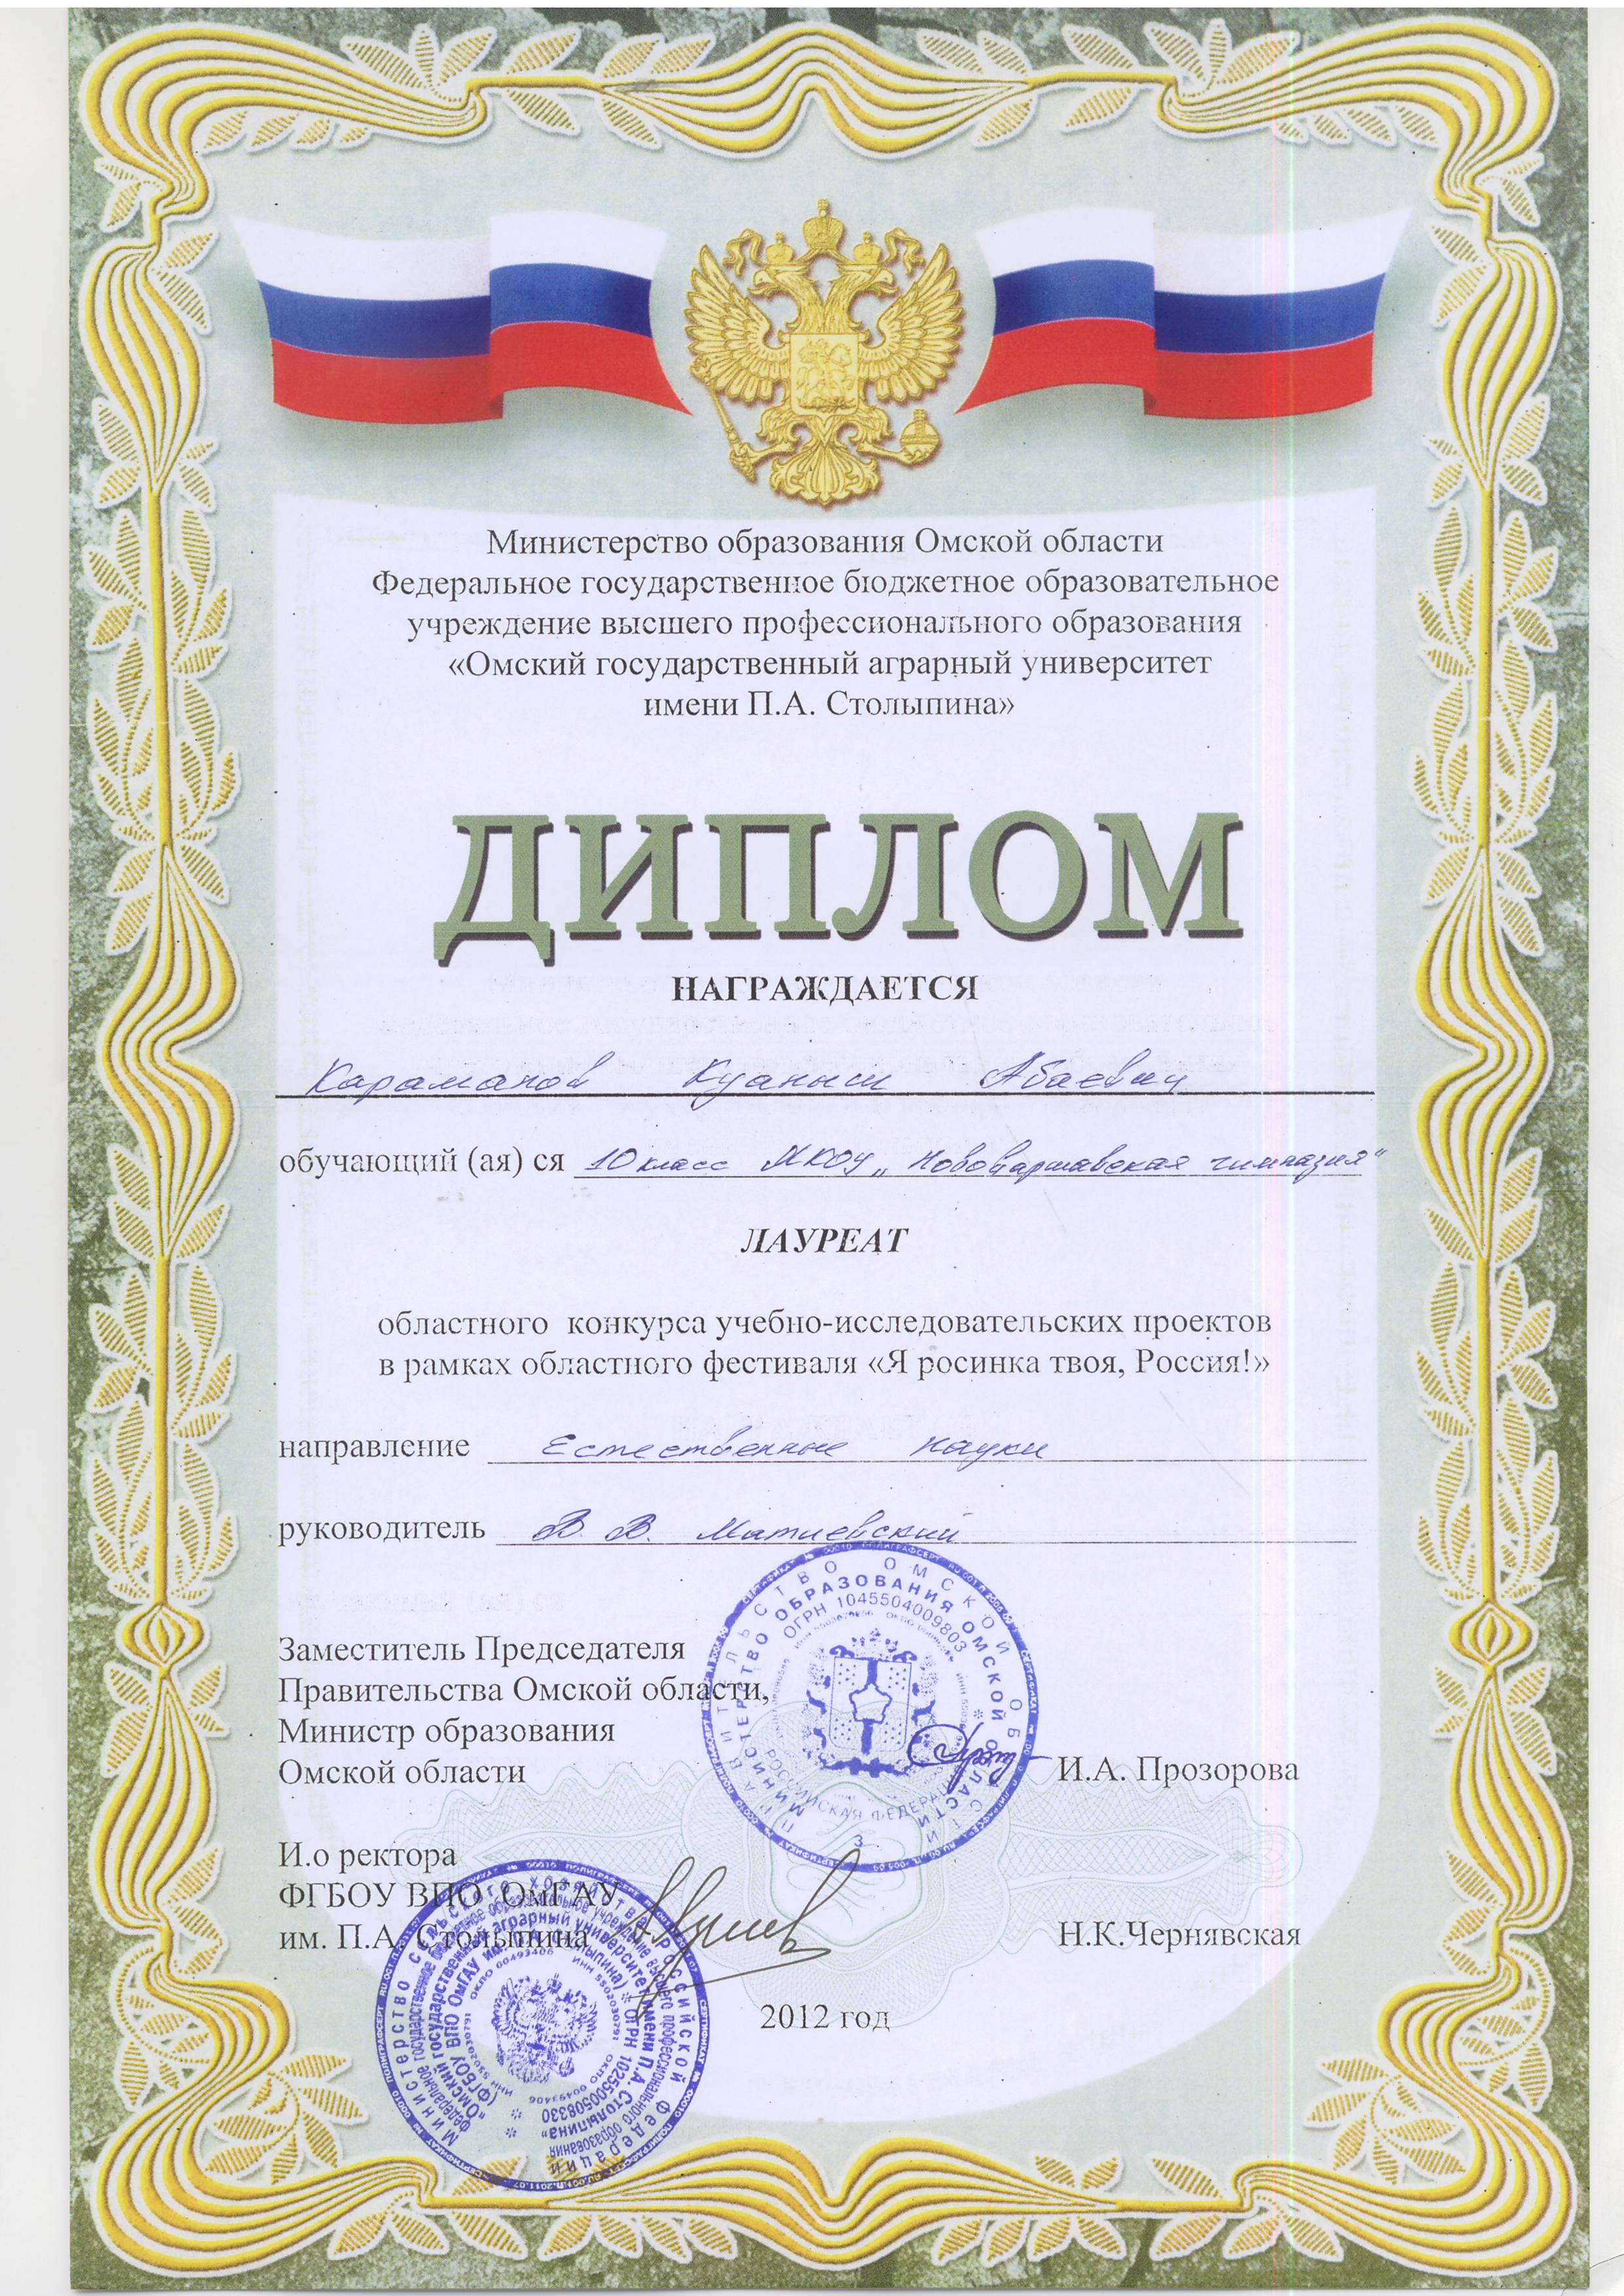 Министерство образования Омской области
Федеральное государственное бюджетное образовательное
учреждение высшего профессионального образования
«Омский государственный аграрный университет
имени П.А. Столыпина»
ДИПЛОМ
НАГРАЖДАЕТСЯ
Караманов Куаныш Абаевич
обучающий (ая) ся 10 класс МКОУ „Нововаршавская гимназия“
ЛАУРЕАТ
областного конкурса учебно-исследовательских проектов
в рамках областного фестиваля «Я росинка твоя, Россия!»
направление Естественные науки
руководитель В. В. Матиевский
ПРАВИТЕЛЬСТВО ОМСКОЙ ОБЛАСТИ
МИНИСТЕРСТВО ОБРАЗОВАНИЯ ОМСКОЙ ОБЛАСТИ
ОГРН 1045504009803
РОССИЙСКАЯ ФЕДЕРАЦИЯ
3
Заместитель Председателя
Правительства Омской области,
Министр образования
Омской области И.А. Прозорова
И.о ректора
ФГБОУ ВПО ОмГАУ
им. П.А. Столыпина Н.К.Чернявская
Министерство сельского хозяйства Российской Федерации
федеральное государственное бюджетное образовательное учреждение высшего профессионального образования
«Омский государственный аграрный университет имени П.А. Столыпина»
(ФГБОУ ВПО ОмГАУ им. П.А. Столыпина) * ОГРН 1025500508330
ИНН 5502030791 ОКПО 00493406
2012 год